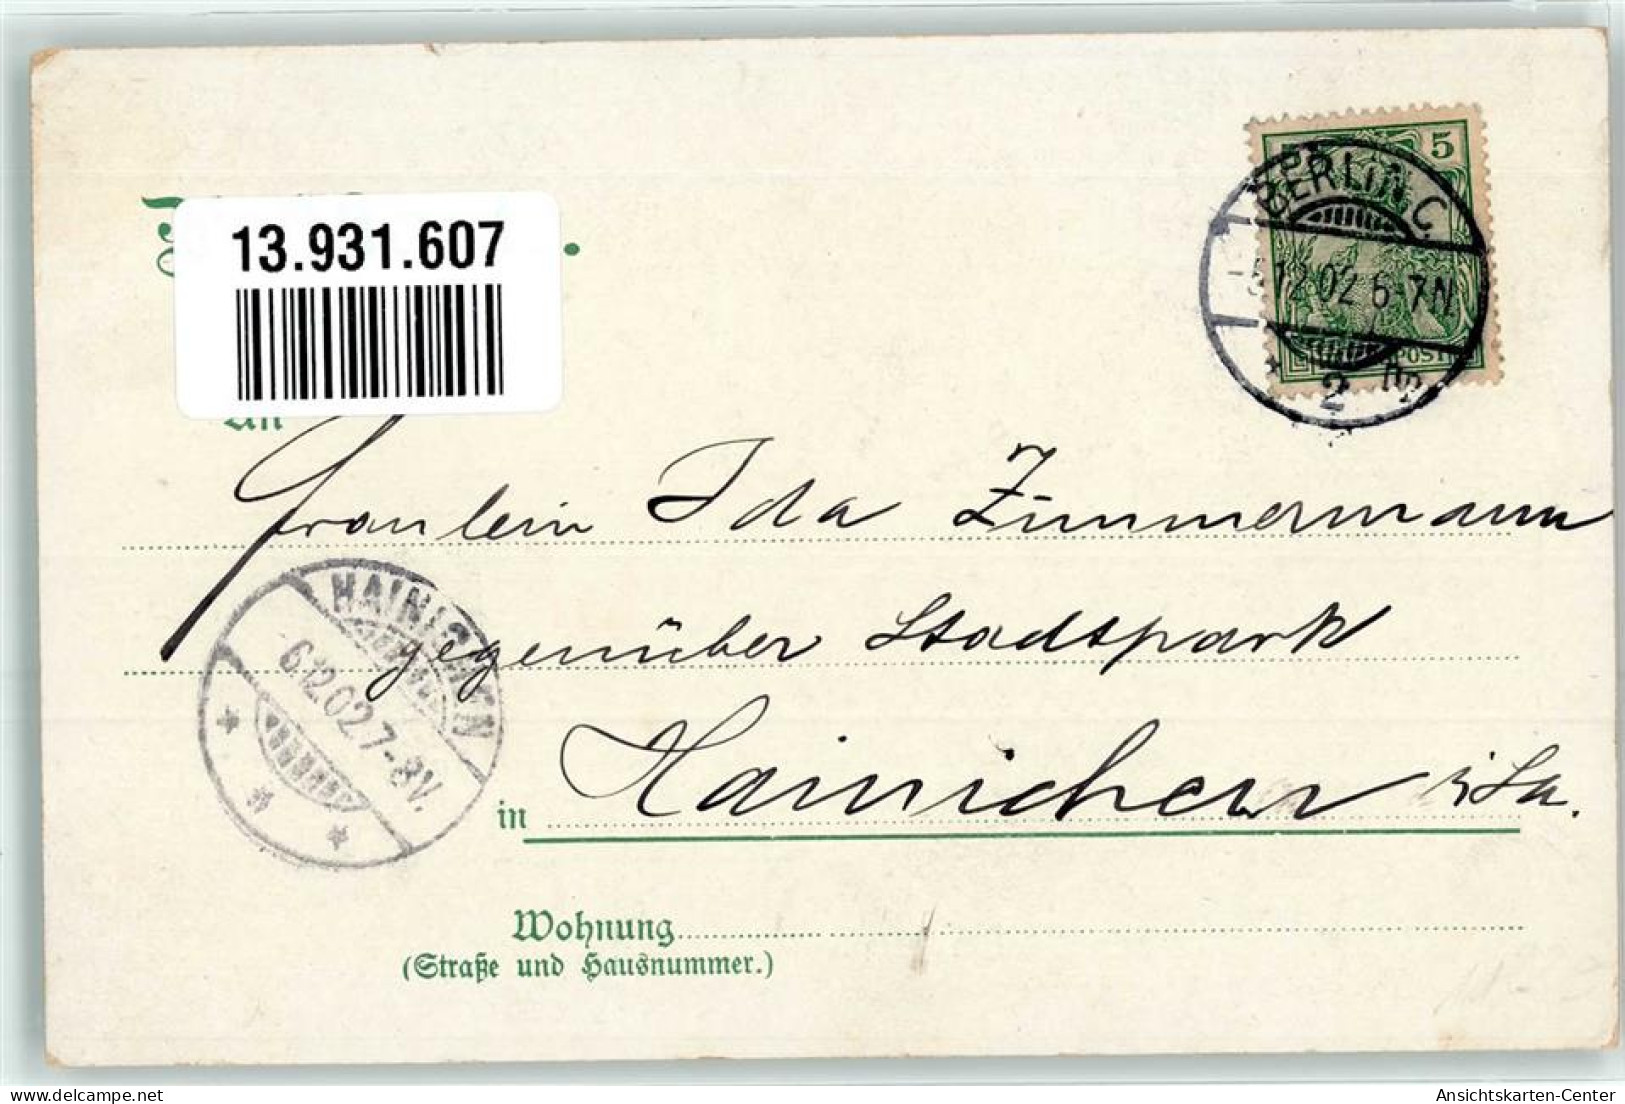 13.931.607
5
BERLIN C.
12.02 6-7N.
2
An
Fräulein Ida Zimmermann
gegenüber Stadtpark
HAINICHEN
6.12.02 7-8V.
in Hainichen i/Sa.
Wohnung
(Straße und Hausnummer.)
delcampe.net
Ansichtskarten-Center